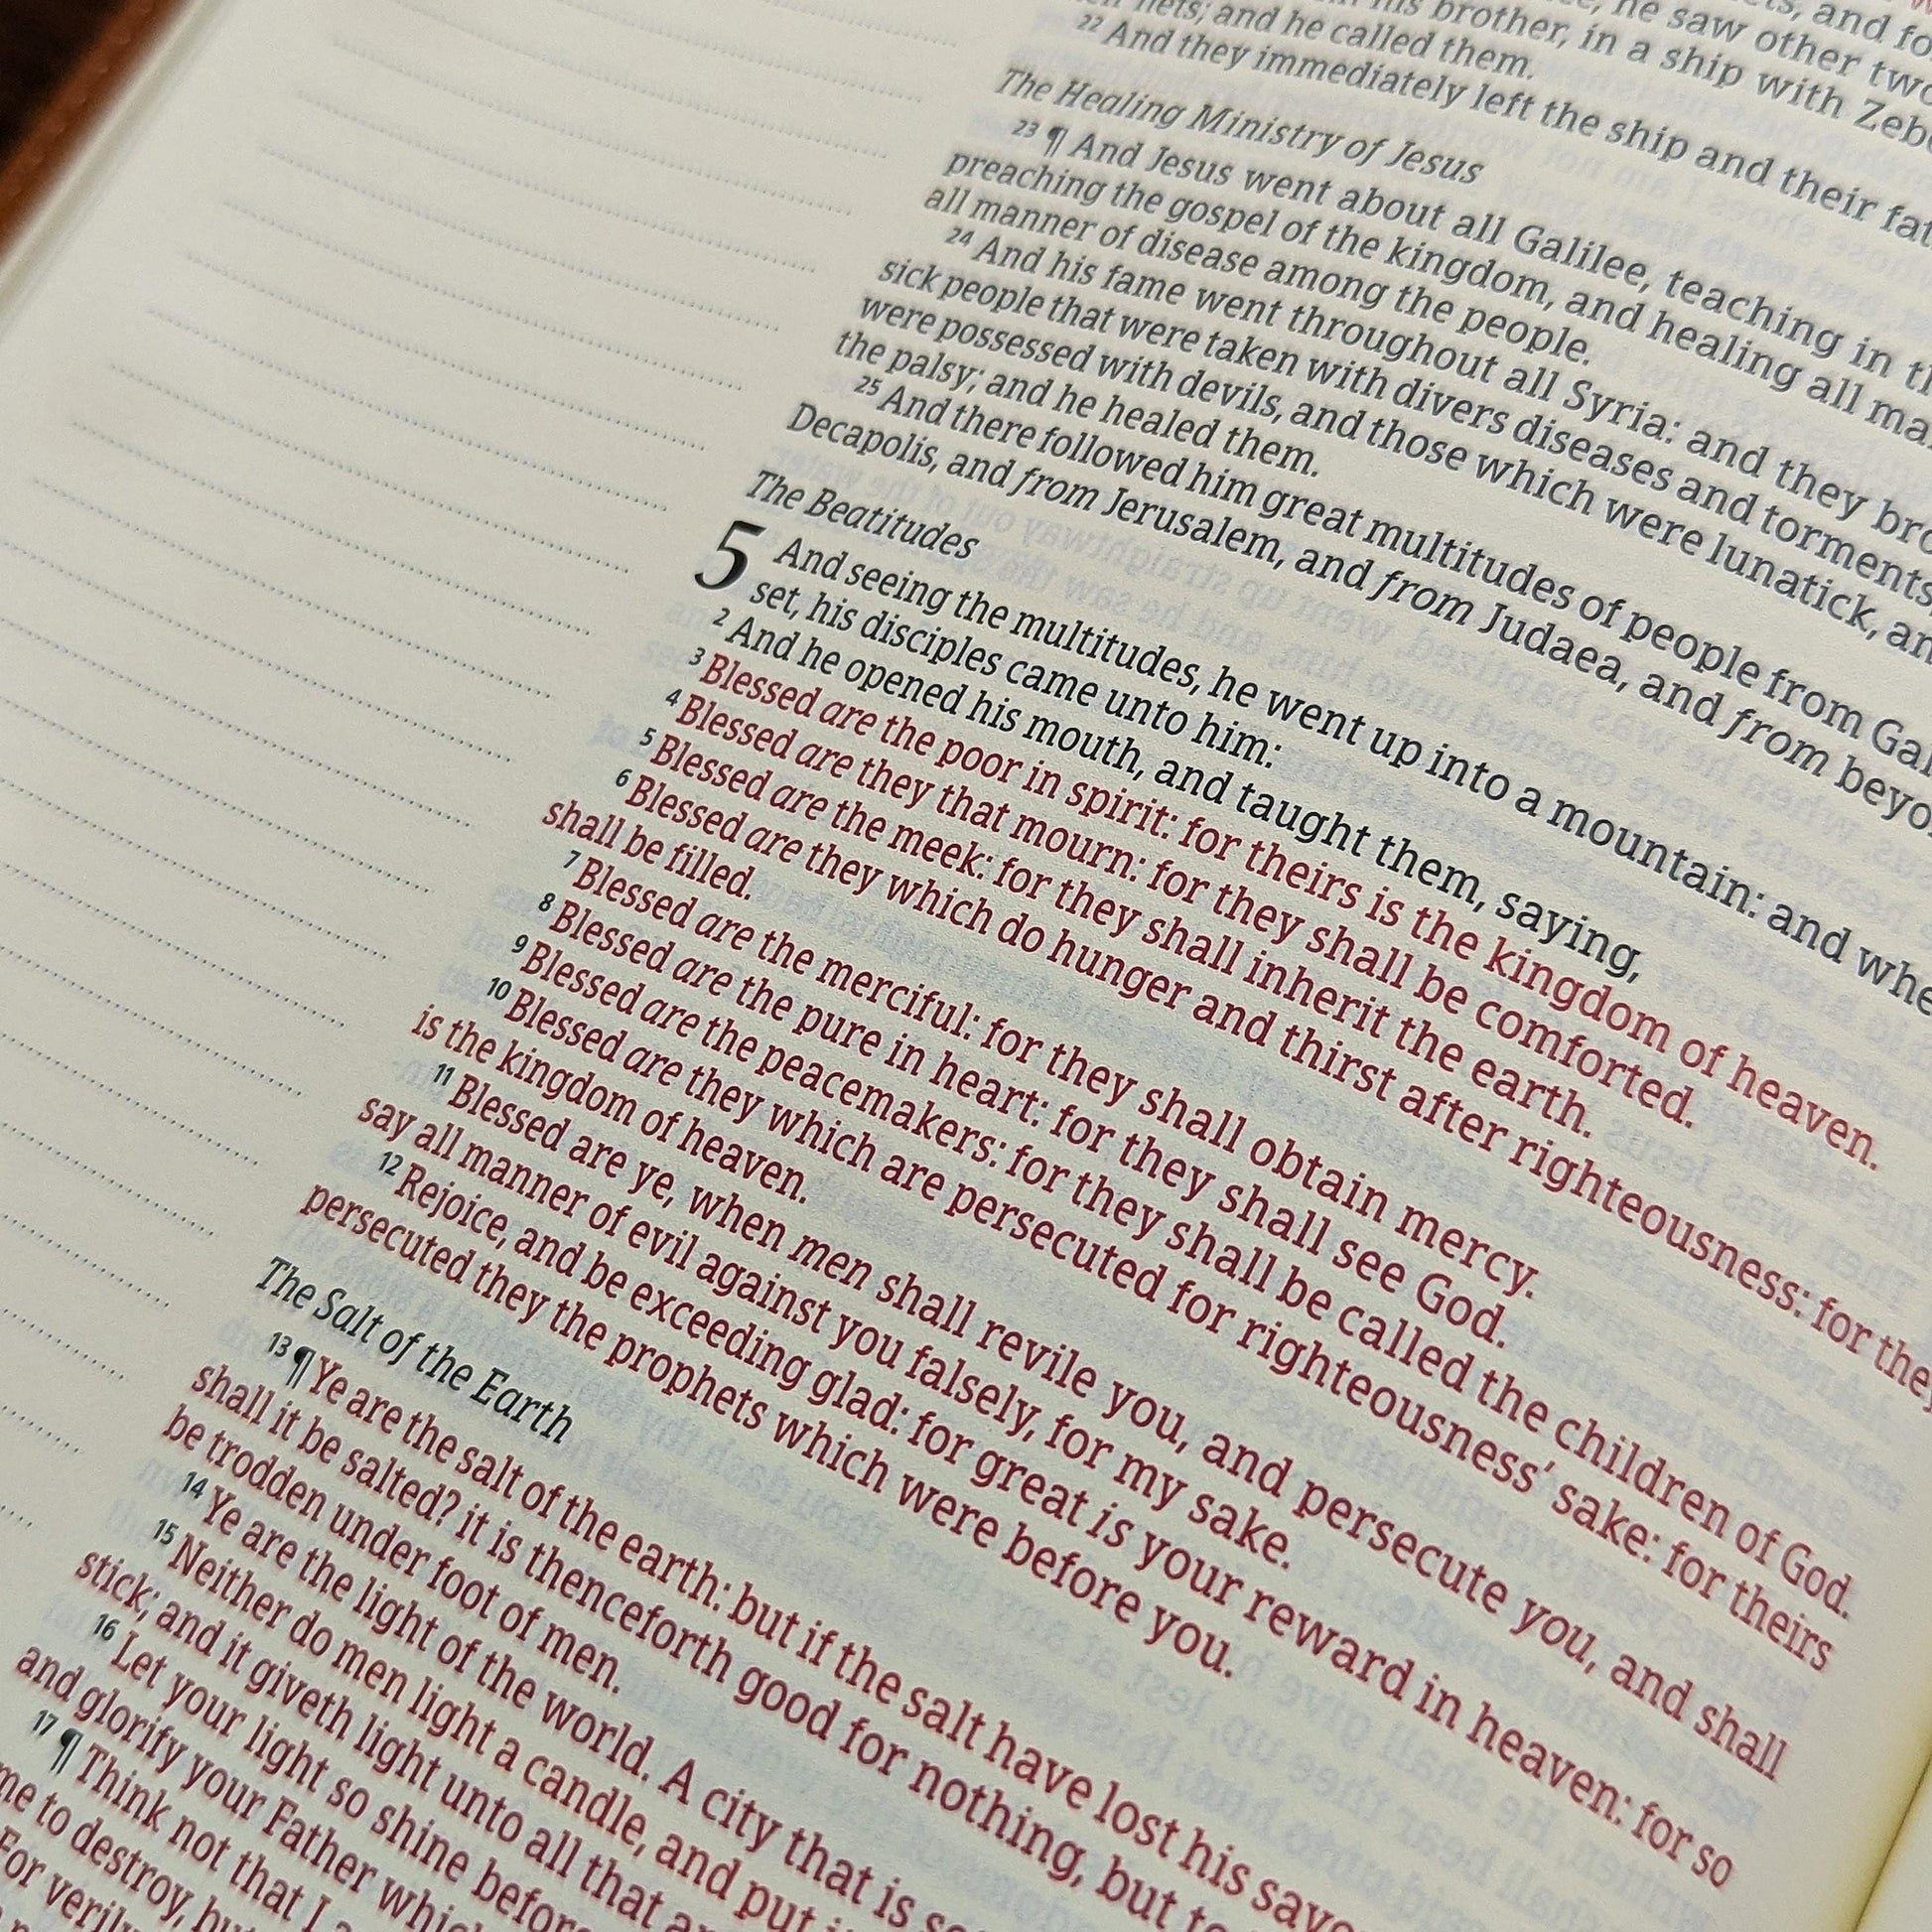 he saw other two
his brother, in a ship with
nets; and he called them.
22 And they immediately left the ship and their
The Healing Ministry of Jesus
23 ¶ And Jesus went about all Galilee, teaching in
preaching the gospel of the kingdom, and healing all
all manner of disease among the people.
24 And his fame went throughout all Syria: and they
sick people that were taken with divers diseases and torments,
were possessed with devils, and those which were lunatick,
the palsy; and he healed them.
25 And there followed him great multitudes of people from
Decapolis, and from Jerusalem, and from Judaea, and from
The Beatitudes
5 And seeing the multitudes, he went up into a mountain: and
set, his disciples came unto him:
2 And he opened his mouth, and taught them, saying,
3 Blessed are the poor in spirit: for theirs is the kingdom of heaven.
4 Blessed are they that mourn: for they shall be comforted.
5 Blessed are the meek: for they shall inherit the earth.
6 Blessed are they which do hunger and thirst after righteousness: for they
shall be filled.
7 Blessed are the merciful: for they shall obtain mercy.
8 Blessed are the pure in heart: for they shall see God.
9 Blessed are the peacemakers: for they shall be called the children of God.
10 Blessed are they which are persecuted for righteousness’ sake: for theirs
is the kingdom of heaven.
11 Blessed are ye, when men shall revile you, and persecute you, and shall
say all manner of evil against you falsely, for my sake.
12 Rejoice, and be exceeding glad: for great is your reward in heaven: for so
persecuted they the prophets which were before you.
The Salt of the Earth
13 ¶ Ye are the salt of the earth: but if the salt have lost his
shall it be salted? it is thenceforth good for nothing, but to
be trodden under foot of men.
14 Ye are the light of the world. A city that is
15 Neither do men light a candle, and put
stick; and it giveth light unto all that
16 Let your light so shine before
and glorify your Father
17 ¶ Think not that I
to destroy,
For